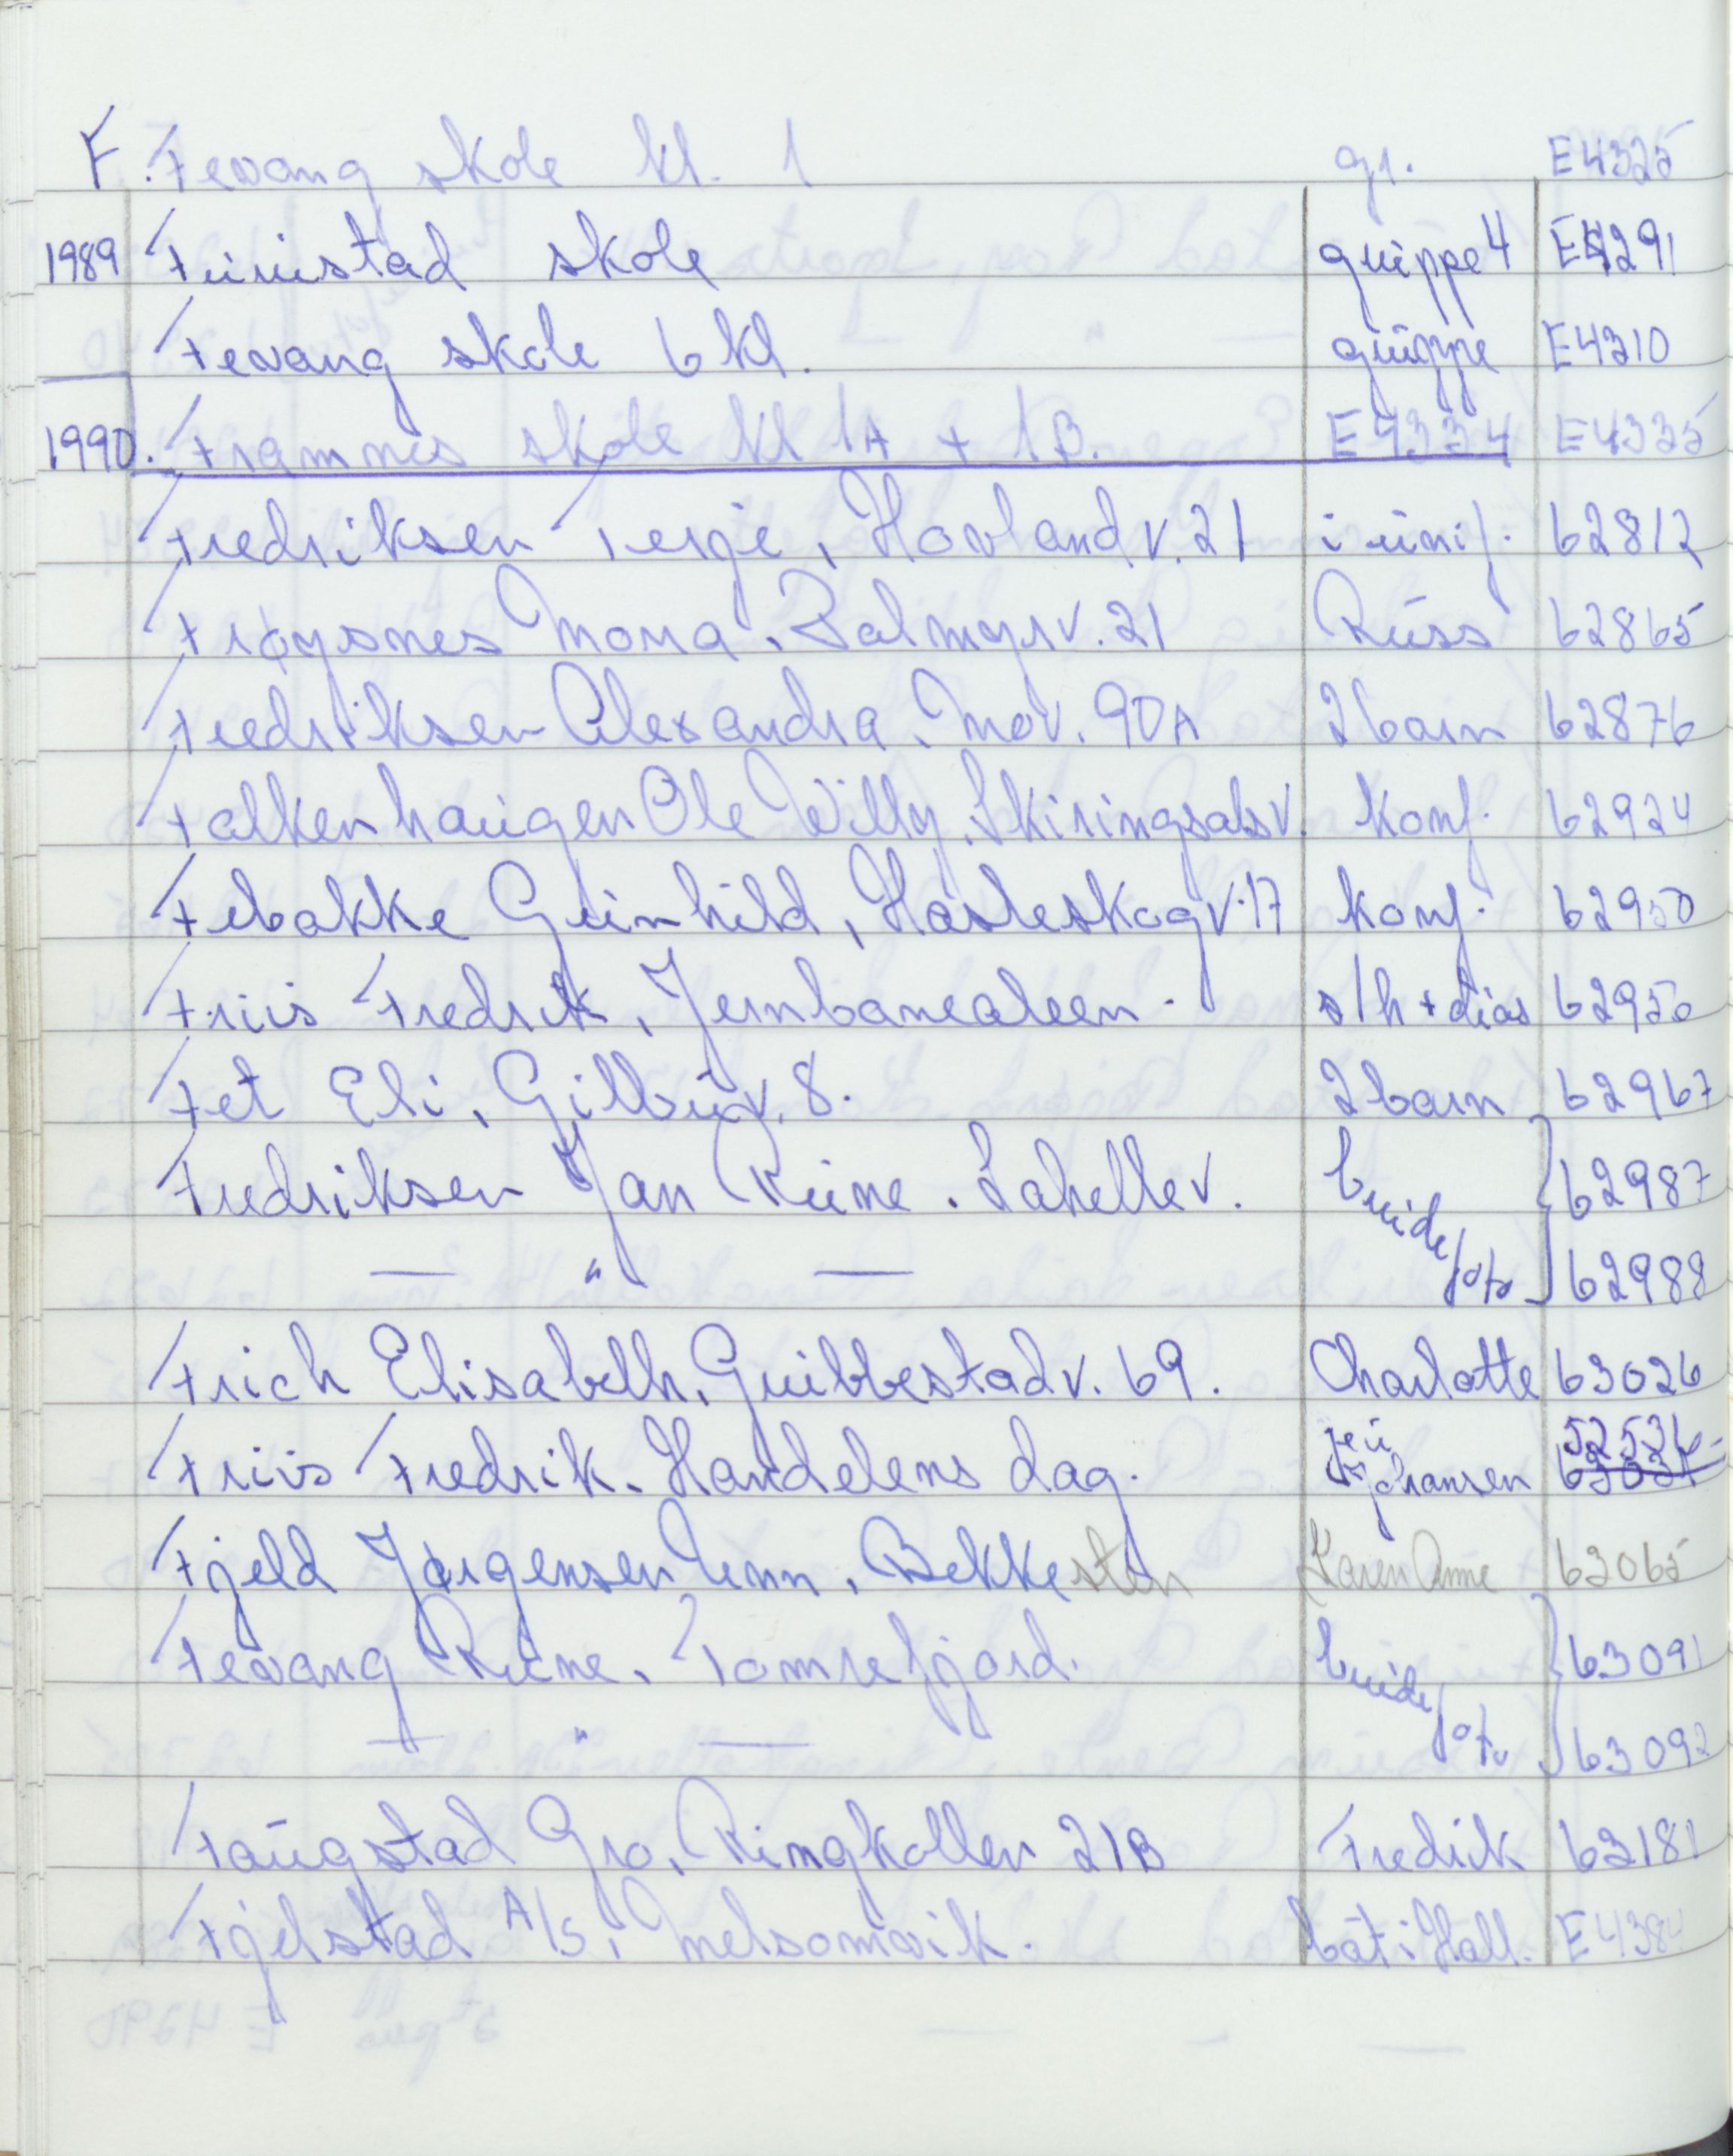 F. Fevang skole kl. 1 gr. E4325
1989 Furustad skole gruppe 4 E4291
Fevang skole 6 kl. gruppe E4310
1990. Framnes skole kl 1A + 1B. E4334 E4335
Fredriksen Terje, Hovland v. 21 i unif. 62812
Frøysnes Mona, Palmyrv. 21 Russ 62865
Fredriksen Alexandra, Mov. 90A 2 barn 62876
Falkenhaugen Ole Willy, Skiringsalsv. konf. 62924
Febakke Gunhild, Hasleskogv. 17 konf. 62950
Friis Fredrik, Jernbanealeen. s/h + dias 62956
Fet Eli, Gilbuv. 8. 2 barn 62967
Fredriksen Jan Rune. Lahellev. brude 62987
— " — foto 62988
Frich Elisabeth, Grubbestadv. 69. Charlotte 63026
Friis Fredrik. Handelens dag. Johansen 52536
Fjeld Jørgensen Unn, Bekkesten Karen Anne 63065
Fevang Rune, Tomrefjord. brude 63091
— " — foto 63092
Faugstad Gro, Ringkollen 21B Fredrik 63181
Fjelstad A/S, Melsomvik. båt i Hall. E4384